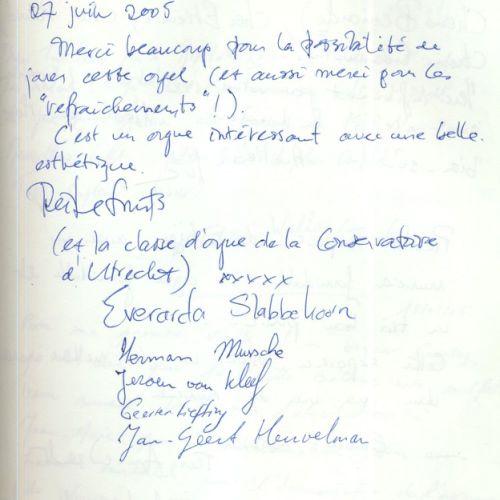 27 juin 2005
Merci beaucoup pour la possibilité de
jouer cette orgel (et aussi merci pour les
"refraichements"!).
C'est un orgue intéressant avec une belle
esthétique.
(et la classe d'orgue de la Conservatoire
d'Utrecht) xxxxx
Everarda Slabbekoorn
Herman Mussche
Jeroen van Kleef
Jan-Geert Heuvelman